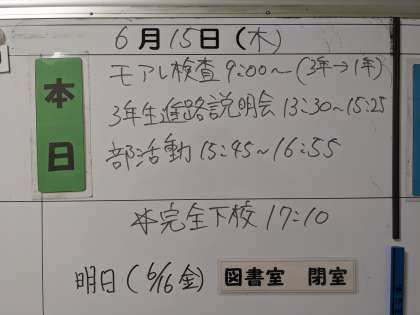 6月15日(木)
本日
モアレ検査 9:00〜(3年→1年)
3年生進路説明会 13:30〜15:25
部活動 15:45〜16:55
※完全下校 17:10
明日(6/16金) 図書室 閉室